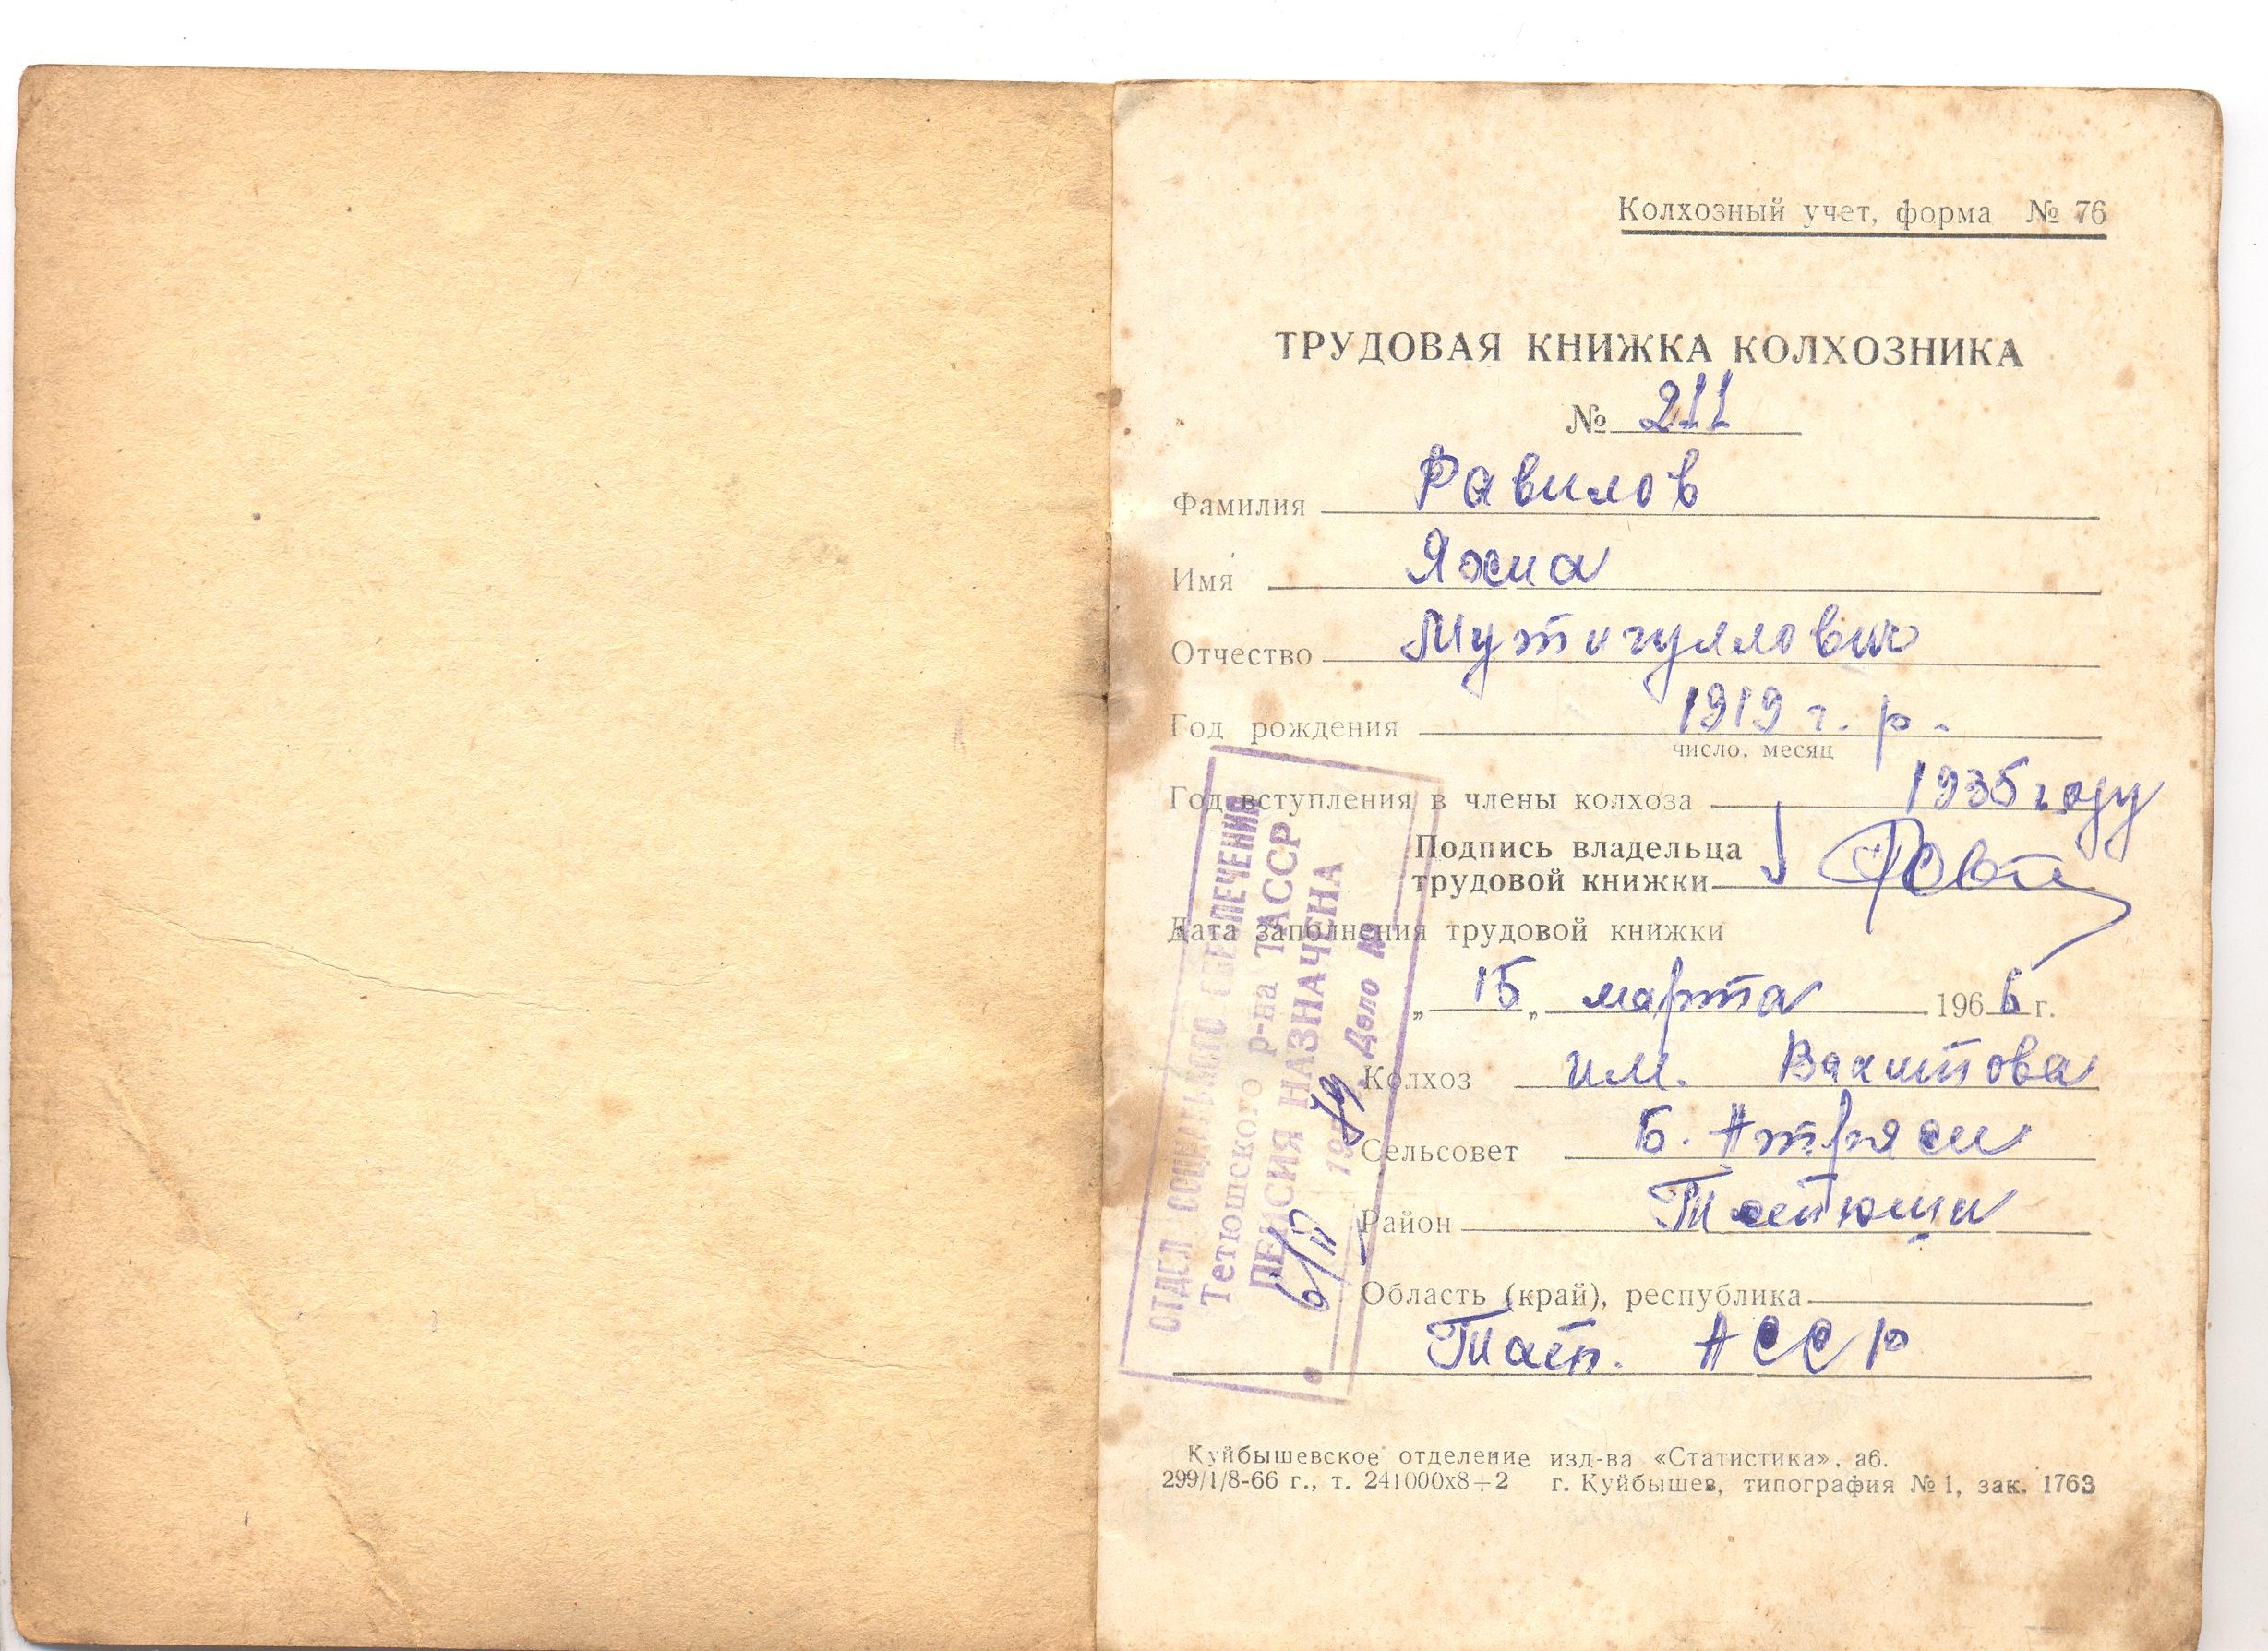 Колхозный учет, форма № 76
ТРУДОВАЯ КНИЖКА КОЛХОЗНИКА
№ 211
Фамилия Равилов
Имя Яхиа
Отчество Мутигуллович
Год рождения 1919 г. р.
число, месяц
Год вступления в члены колхоза 1935 году
Подпись владельца
трудовой книжки
Дата заполнения трудовой книжки
„ 15 „ марта 1966 г.
Колхоз им. Вахитова
Сельсовет Б. Атряси
Район Тетюши
Область (край), республика
Тат. АССР
ОТДЕЛ СОЦИАЛЬНОГО ОБЕСПЕЧЕНИЯ
Тетюшского р-на ТАССР
ПЕНСИЯ НАЗНАЧЕНА
Дело №
Куйбышевское отделение изд-ва «Статистика». аб.
299/1/8-66 г., т. 241000х8+2 г. Куйбышев, типография № 1, зак. 1763